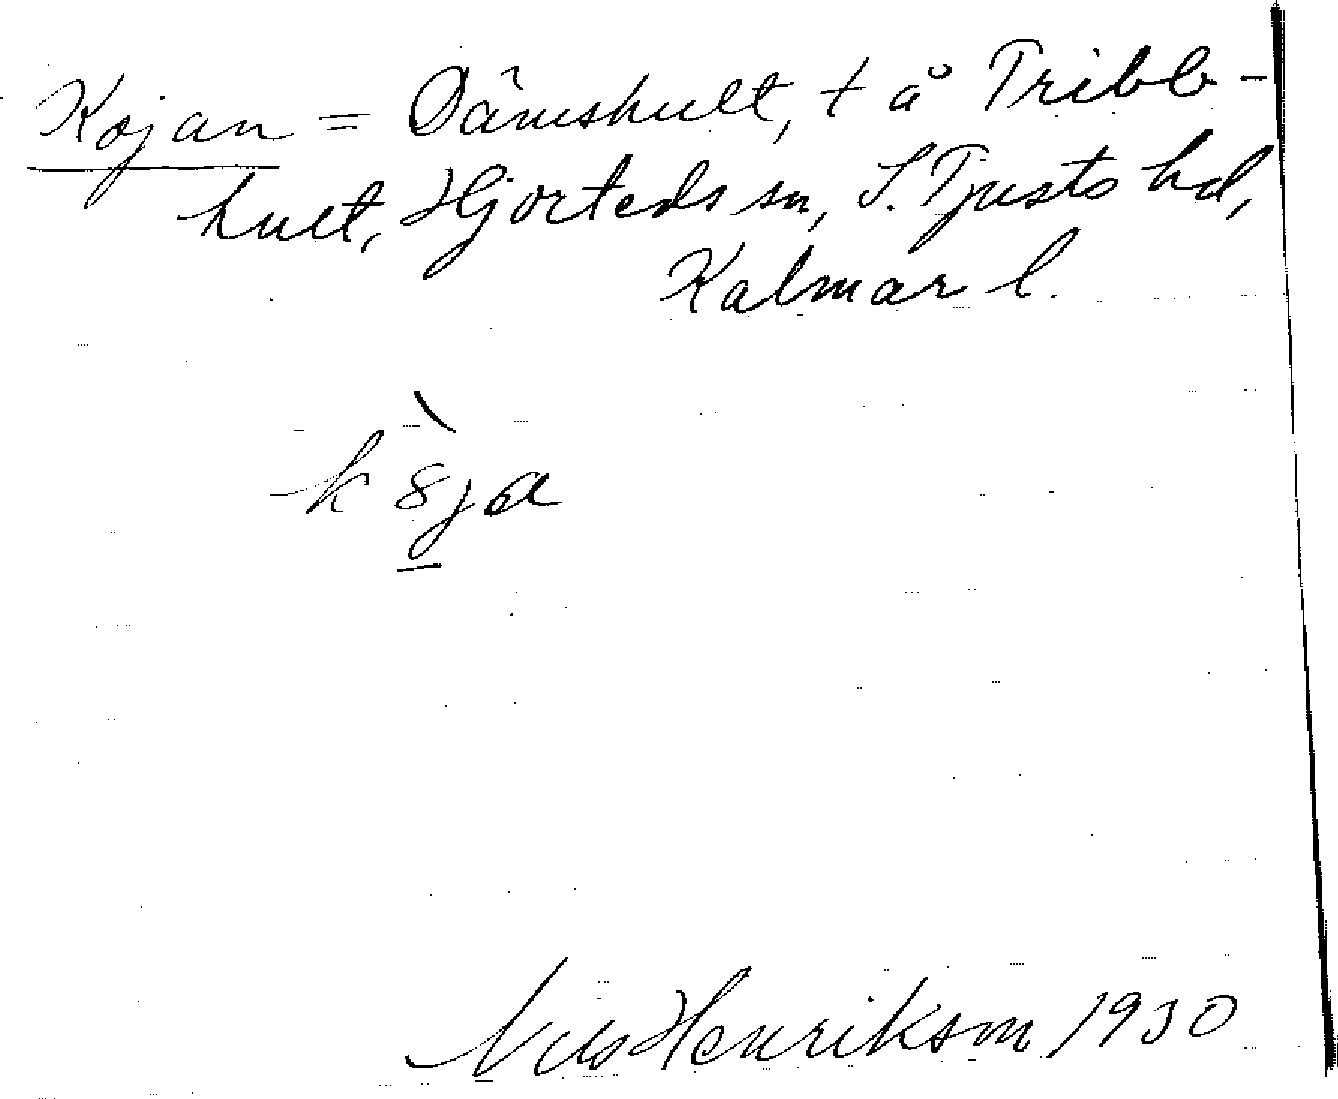 Kojan = Dämshult, t å Tribb-
hult, Hjorteds sn, S. Tjusts hd,
Kalmar l.
k8̀ja
Nils Henrikson 1930